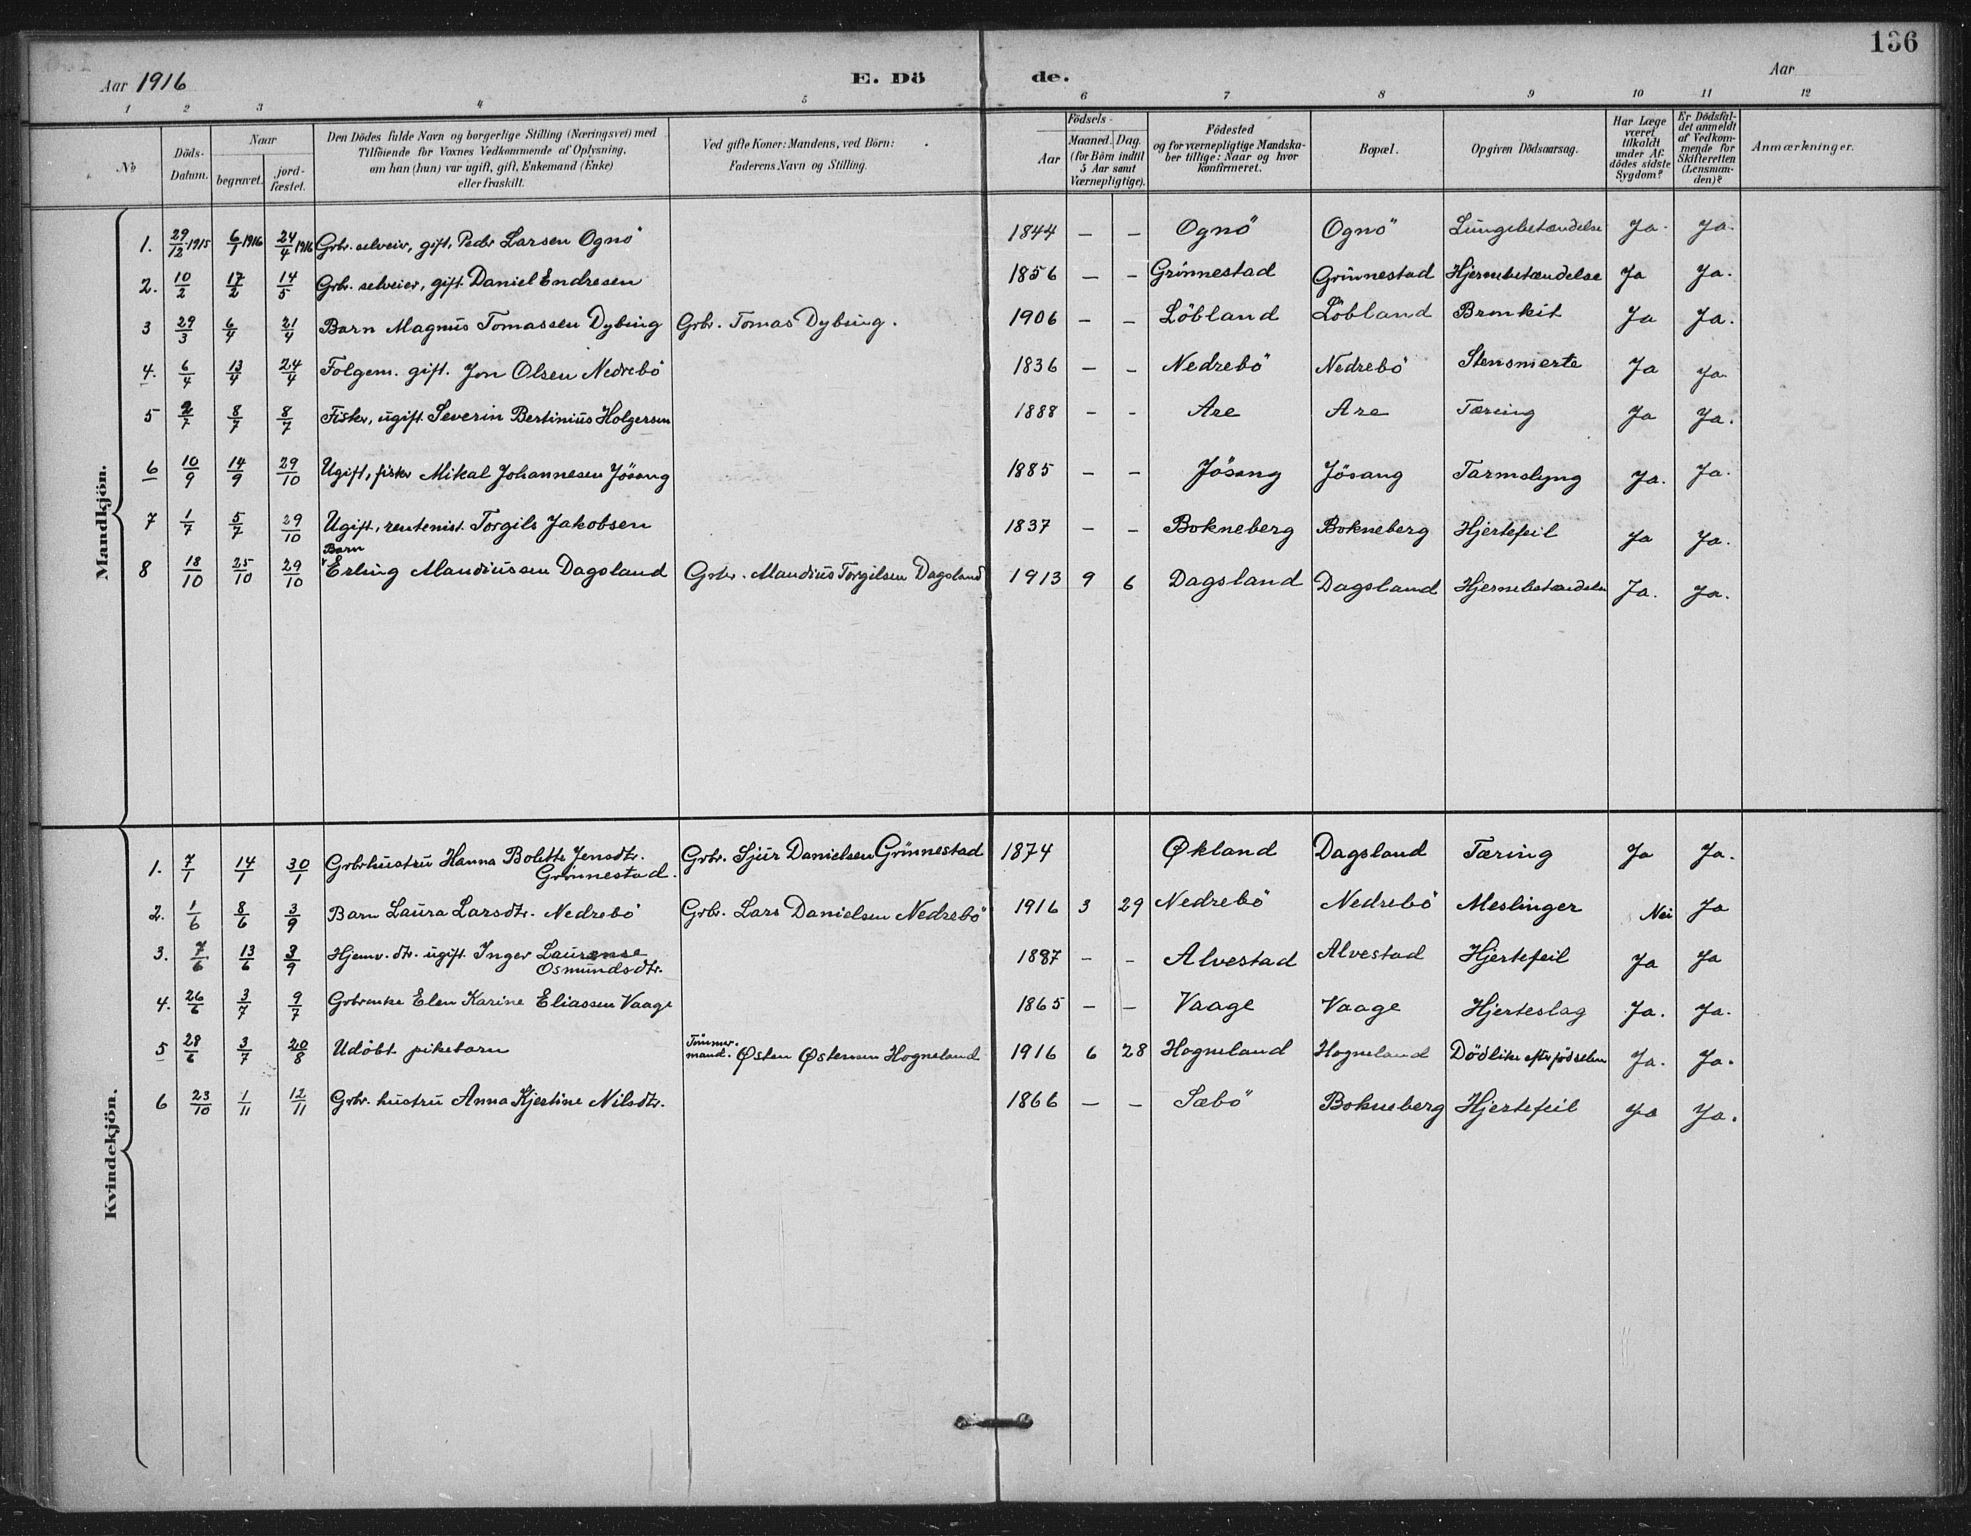 136
Aar 1916 E. Dö de. Aar
1 2 3 4 5 6 7 8 9 10 11 12
No
Döds-Datum.
Naar
begravet.
jord-fæstet.
Den Dödes fulde Navn og borgerlige Stilling (Næringsvei) med
Tilföiende for Voxnes Vedkommende af Oplysning,
om han (hun) var ugift, gift, Enkemand (Enke)
eller fraskilt.
Ved gifte Koner: Mandens, ved Börn:
Faderens Navn og Stilling.
Födsels-
Aar
Maaned. Dag.
(for Börn indtil
5 Aar samt
Værnepligtige).
Födested
og for værnepligtige Mandska-
ber tillige: Naar og hvor
konfirmeret.
Bopæl.
Opgiven Dödsaarsag.
Har Læge
været
tilkaldt
under Af-
dödes sidste
Sygdom?
Er Dödsfal-
det anmeldt
af Vedkom-
mende for
Skifteretten
(Lensman-
den)?
Anmærkninger.
Mandkjön.
1. 29/12 1915 6/1 1916 24/4 1916 Grbr. selveier, gift, Peder Larsen Ognö 1844 – – Ognö Ognö Lungebetændelse Ja. Ja.
2. 10/2 17/2 14/5 Grbr. selveier, gift. Daniel Endresen 1856 – – Grönnestad Grönnestad Hjernebetændelse Ja Ja.
3 29/3 6/4 21/4 Barn Magnus Tomassen Dybing Grbr. Tomas Dybing. 1906 – – Löbland Löbland Bronkit Ja Ja.
4. 6/4 13/4 24/4 Folgem. gift. Jon Olsen Nedrebö 1836 – – Nedrebö Nedrebö Stensmerte Ja Ja
5 2/7 8/7 8/7 Fisker, ugift. Severin Bertinius Holgersen 1888 – – Are Are Tæring Ja Ja.
6 10/9 14/9 29/10 Ugift, fisker Mikal Johannesen Jösang 1885 – – Jösang Jösang Tarmslyng Ja. Ja.
7 1/7 5/7 29/10 Ugift, rentenist. Torgils Jakobsen 1837 – – Bokneberg Bokneberg Hjertefeil Ja Ja.
Barn
8 18/10 25/10 29/10 Erling Mandiussen Dagsland Grbr. Mandius Torgilsen Dagsland 1913 9 6 Dagsland Dagsland Hjernebetændelse Ja. Ja.
Kvindekjön.
1. 7/1 14/1 30/1 Grbrhustru Hanna Bolette Jensdtr. Grbr. Sjur Danielsen Grönnestad 1874 Økland Dagsland Tæring Ja Ja.
Grönnestad.
2. 1/6 8/6 3/9 Barn Laura Larsdtr. Nedrebö Grbr. Lars Danielsen Nedrebö 1916 3 29 Nedrebö Nedrebö Meslinger Nei Ja
3. 7/6 13/6 3/9 Hjemv. dtr. ugift. Inger Laurense 1887 – – Alvestad Alvestad Hjertefeil Ja Ja
Osmundsdtr.
4. 26/6 3/7 9/7 Grbrenke Elen Karine Eliassen Vaage 1865 – – Vaage Vaage Hjerteslag Ja. Ja.
5 28/6 3/7 20/8 Udöbt pikebarn Tömmer-mand. Østen Østensen Hogneland 1916 6 28 Hogneland Hogneland Död like efter födselen Ja. Ja.
6 23/10 1/11 12/11 Grbr. hustru Anna Kjestine Nilsdtr. 1866 – – Sæbö Bokneberg Hjertefeil Ja Ja.